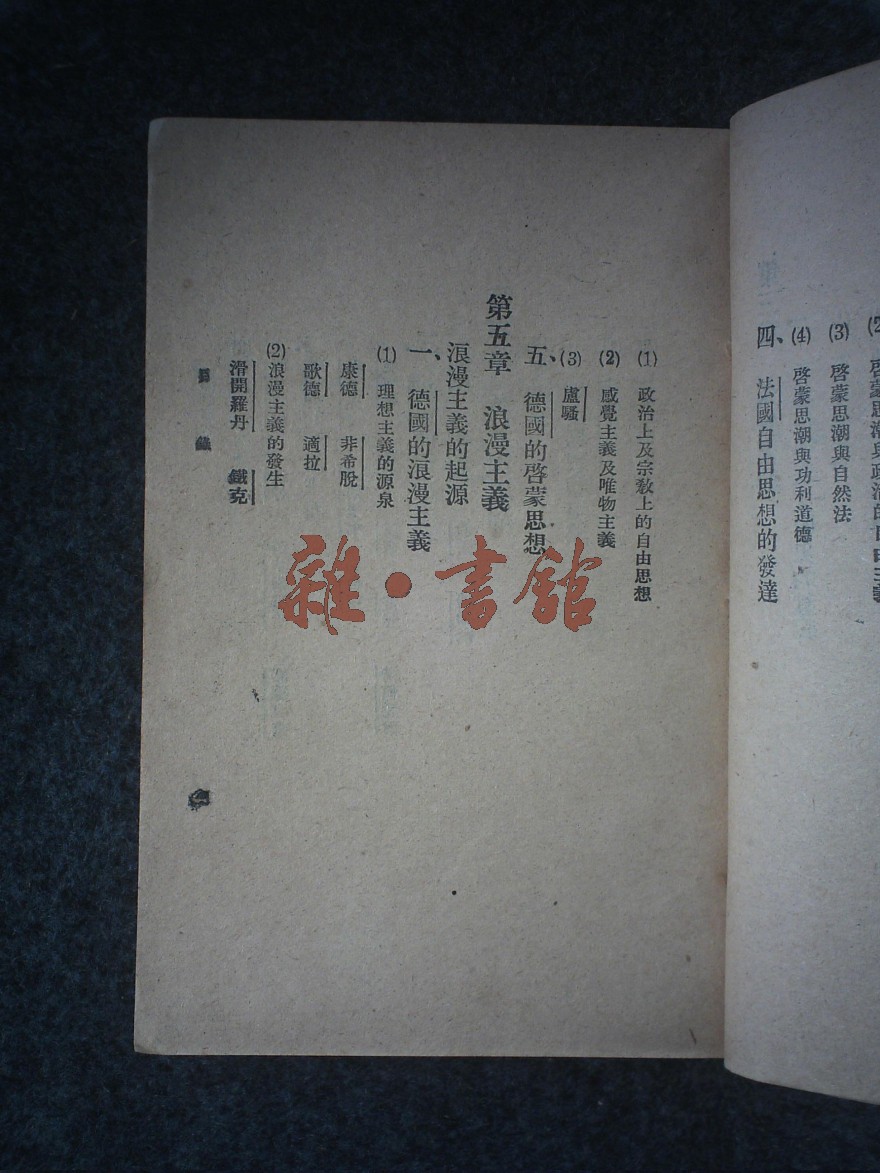 啓蒙思潮與政治的自由主義
(3) 啓蒙思潮與自然法
(4) 啓蒙思潮與功利道德
四、法國自由思想的發達
(1) 政治上及宗教上的自由思想
(2) 感覺主義及唯物主義
(3) 盧騷
五、德國的啓蒙思想
第五章 浪漫主義
浪漫主義的起源
一、德國的浪漫主義
(1) 理想主義的源泉
康德 非希脫
歌德 適拉
(2) 浪漫主義的發生
滑開羅丹 鐵克
目錄
雜·書館